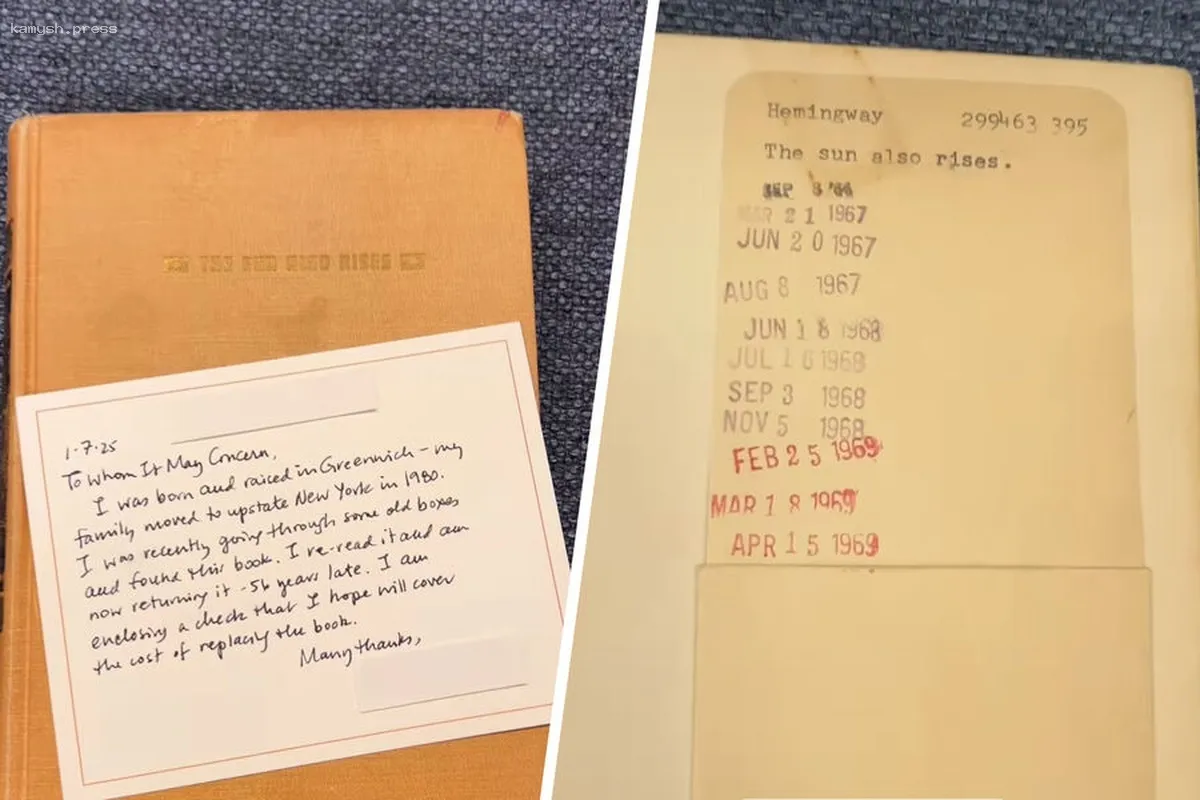 kamysh.press
THE SUN ALSO RISES
1-7-25
To Whom It May Concern,
I was born and raised in Greenwich - my
family moved to upstate New York in 1980.
I was recently going through some old boxes
and found this book. I re-read it and am
now returning it - 56 years late. I am
enclosing a check that I hope will cover
the cost of replacing the book.
Many thanks,
Hemingway 299463 395
The sun also rises.
SEP 8 '66
MAR 21 1967
JUN 20 1967
AUG 8 1967
JUN 18 1968
JUL 16 1968
SEP 3 1968
NOV 5 1968
FEB 25 1969
MAR 18 1969
APR 15 1969